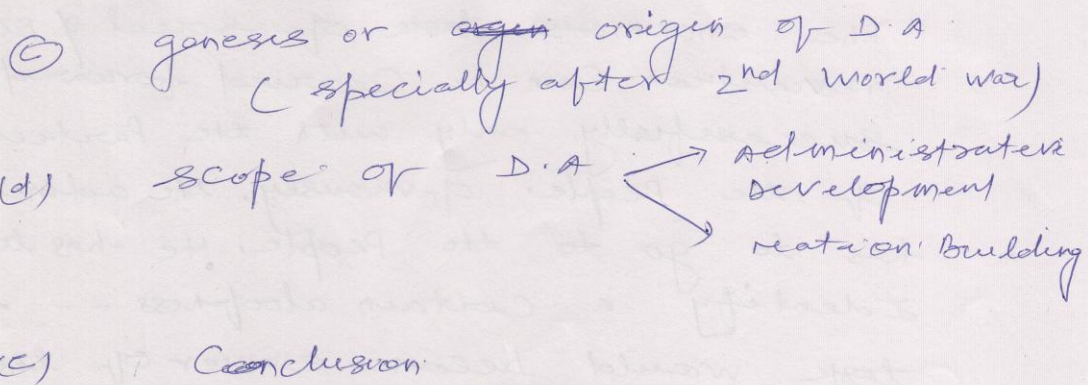 (c) genesis or origin of D.A
(specially after 2nd world war)
(d) scope of D.A → Administrative
Development
→ Nation Building
(e) Conclusion